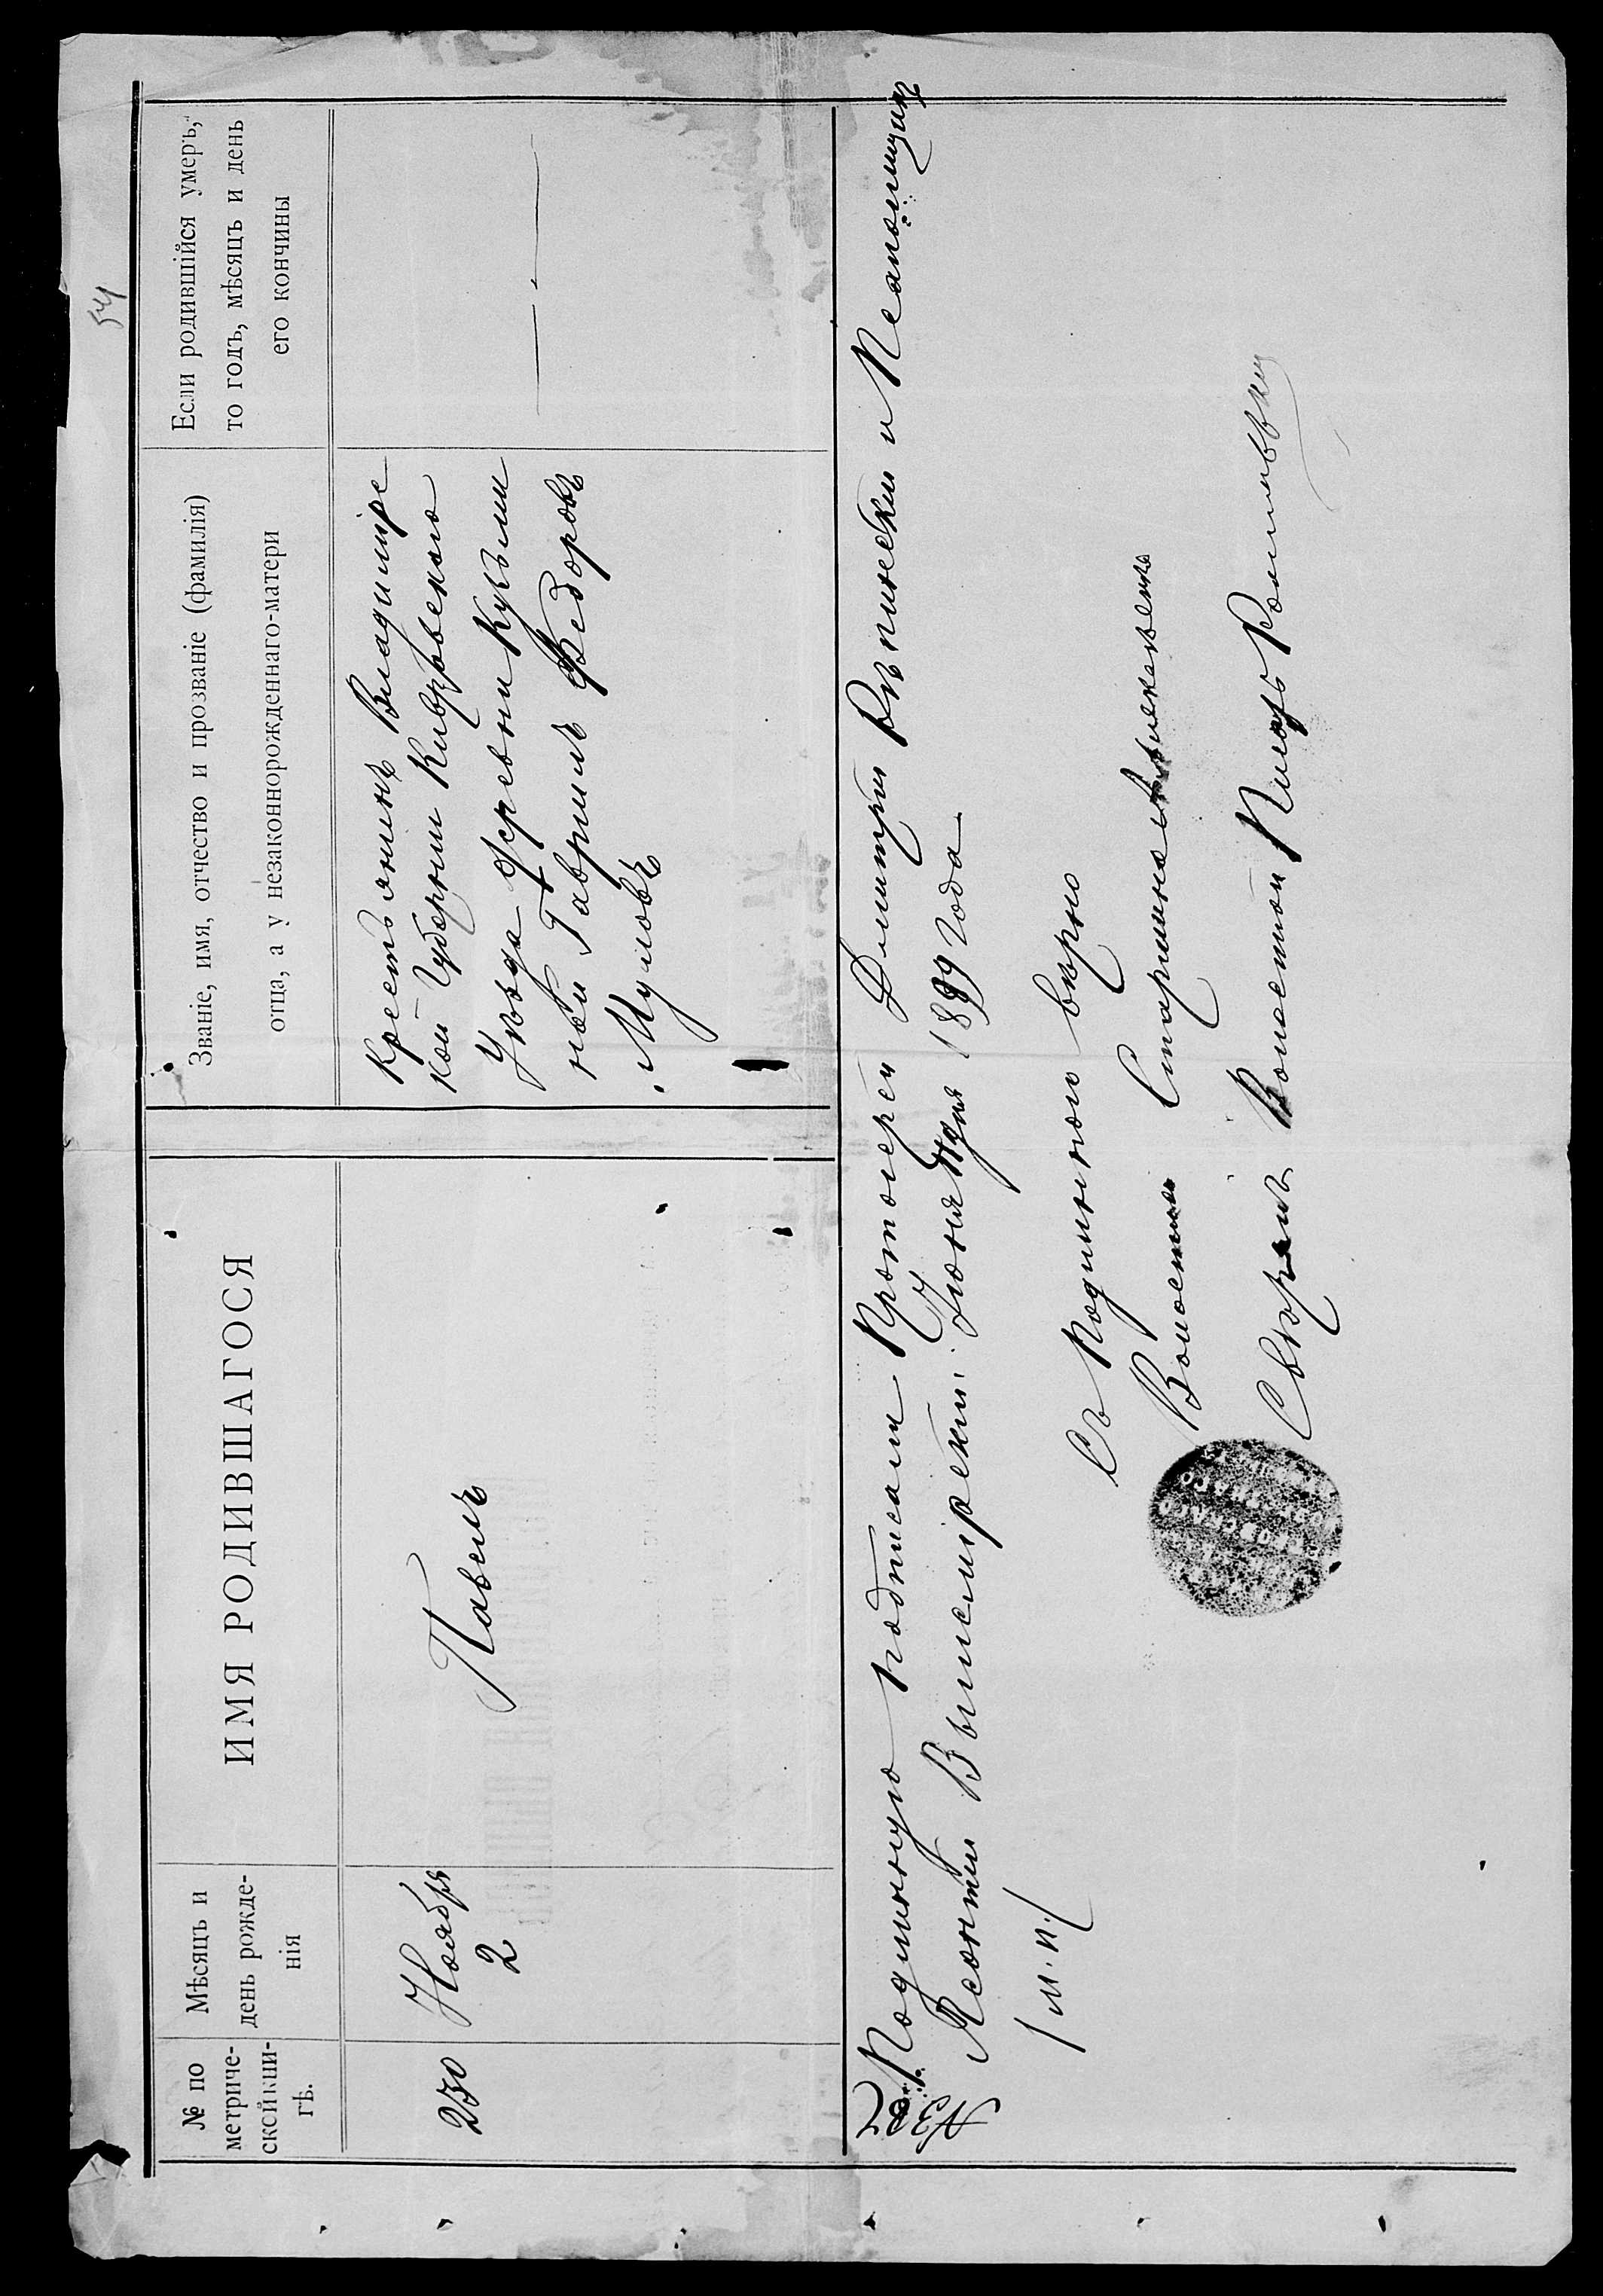 54
№ по метриче-
ской кни-
гѣ.
Мѣсяцъ и
день рожде-
нія
ИМЯ РОДИВШАГОСЯ
Званіе, имя, отчество и прозваніе (фамилія)
отца, а у незаконнорожденнаго-матери
Если родившійся умеръ,
то годъ, мѣсяцъ и день
его кончины
230
Ноября
2
Павелъ
Крестьянинъ Владимірс
кой Губерніи Ковровскаго
Уѣзда деревни
ной Гавриилъ Федоровъ
Муловъ
Подлинную подписали Протоіерей Димитрій и Псаломщикъ
Леонтій Іюня дня 1899 года
/м. п./
№
Съ подлиннымъ вѣрно
Волостной Старшина
Свѣрялъ Волостной Писарь